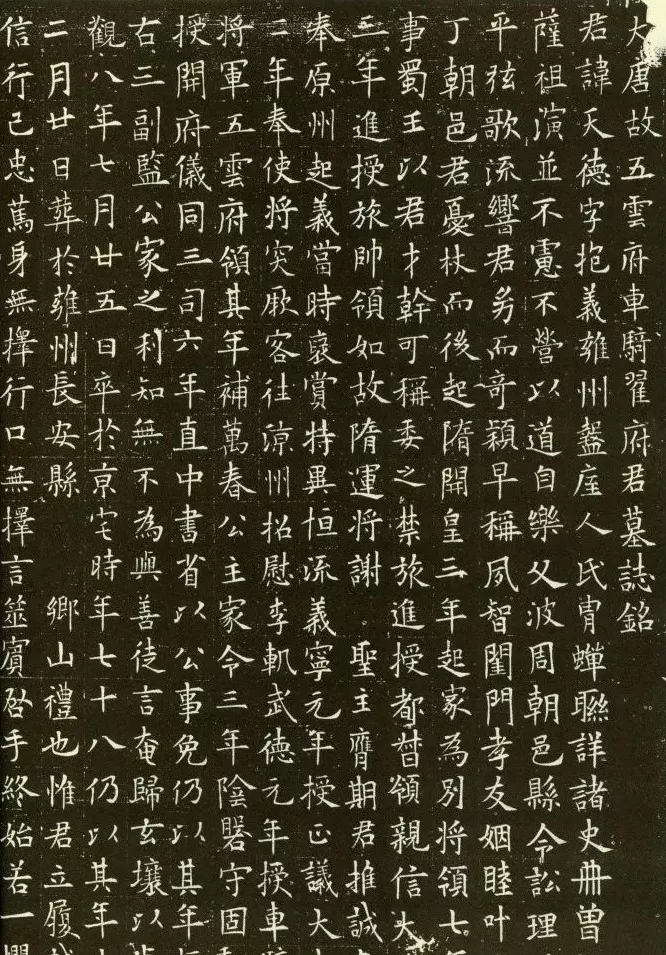 大唐故五雲府車騎翟府君墓誌銘
君諱天德字抱義雍州盩庢人氏胄蟬聯詳諸史冊曾
薩祖演並不慮不營以道自樂父波周朝邑縣令訟理
平弦歌流響君㓜而奇穎早稱夙智閨門孝友姻睦叶
丁朝邑君憂杖而後起隋開皇三年起家為別將領七
事蜀王以君才幹可稱委之禁旅進授都督領親信大
三年進授旅帥領如故隋運將謝 聖主膺期君推誠
奉原州起義當時襃賞特異恒流義寧元年授正議大
二年奉使將突厥客往涼州招慰李軌武德元年授車
將軍五雲府領其年補萬春公主家令三年陰磐守固
授開府儀同三司六年直中書省以公事免仍以其年
右三副監公家之利知無不為與善徒言奄歸玄壤以
觀八年七月廿五日卒於京宅時年七十八仍以其年
二月廿日葬於雍州長安縣 鄉山禮也惟君立履
信行己忠篤身無擇行口無擇言筮賓啓手終始若一